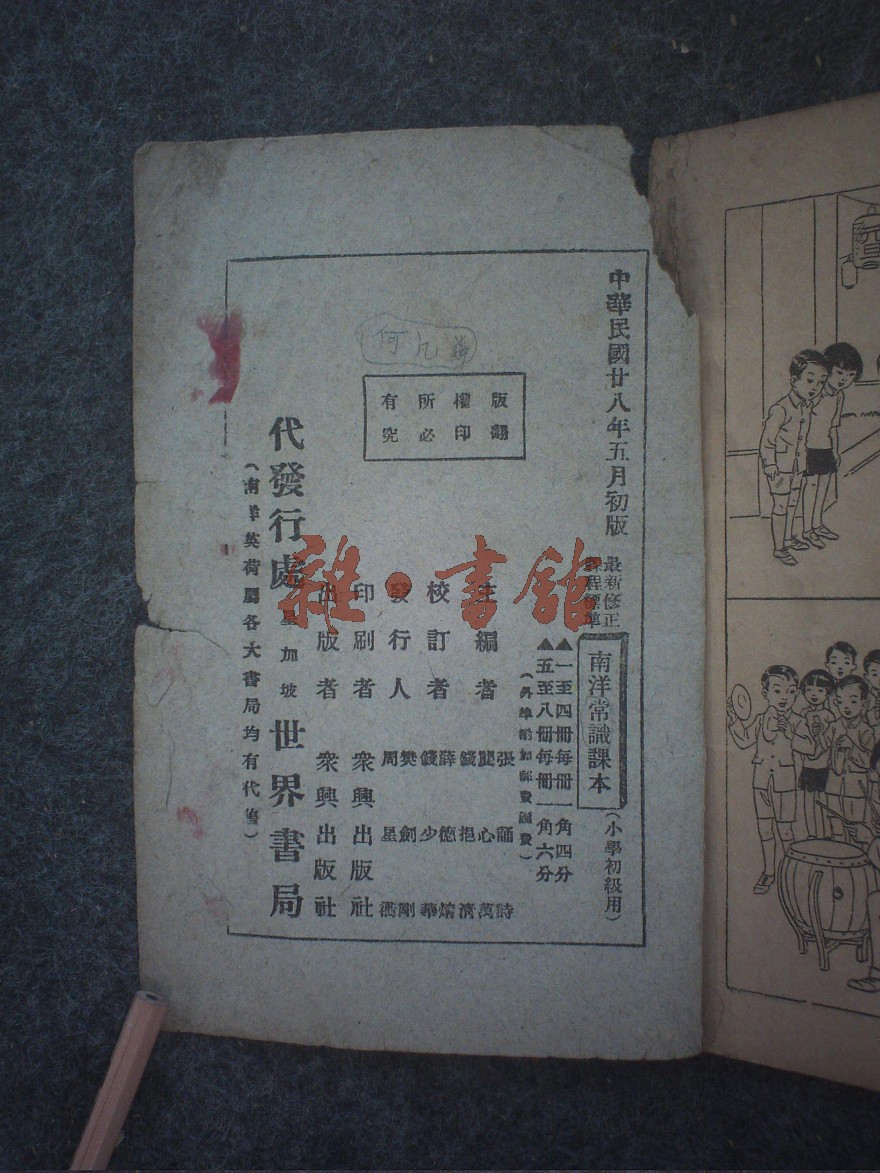 中華民國廿八年五月初版
最新修正
課程標準
南洋常識課本
(小學初級用)
▲一至四冊每冊一角四分
▲五至八冊每冊一角六分
主編者
張誦詩
龔心萬
錢挹清
校訂者
薛德焴
錢少華
發行人
樊劍剛
周星衢
印刷者
衆興出版社
出版者
衆興出版社
代發行處
星加坡
世界書局
(南洋英荷屬各大書局均有代售)
版權所有
翻印必究
何凡
元旦
雜·書館